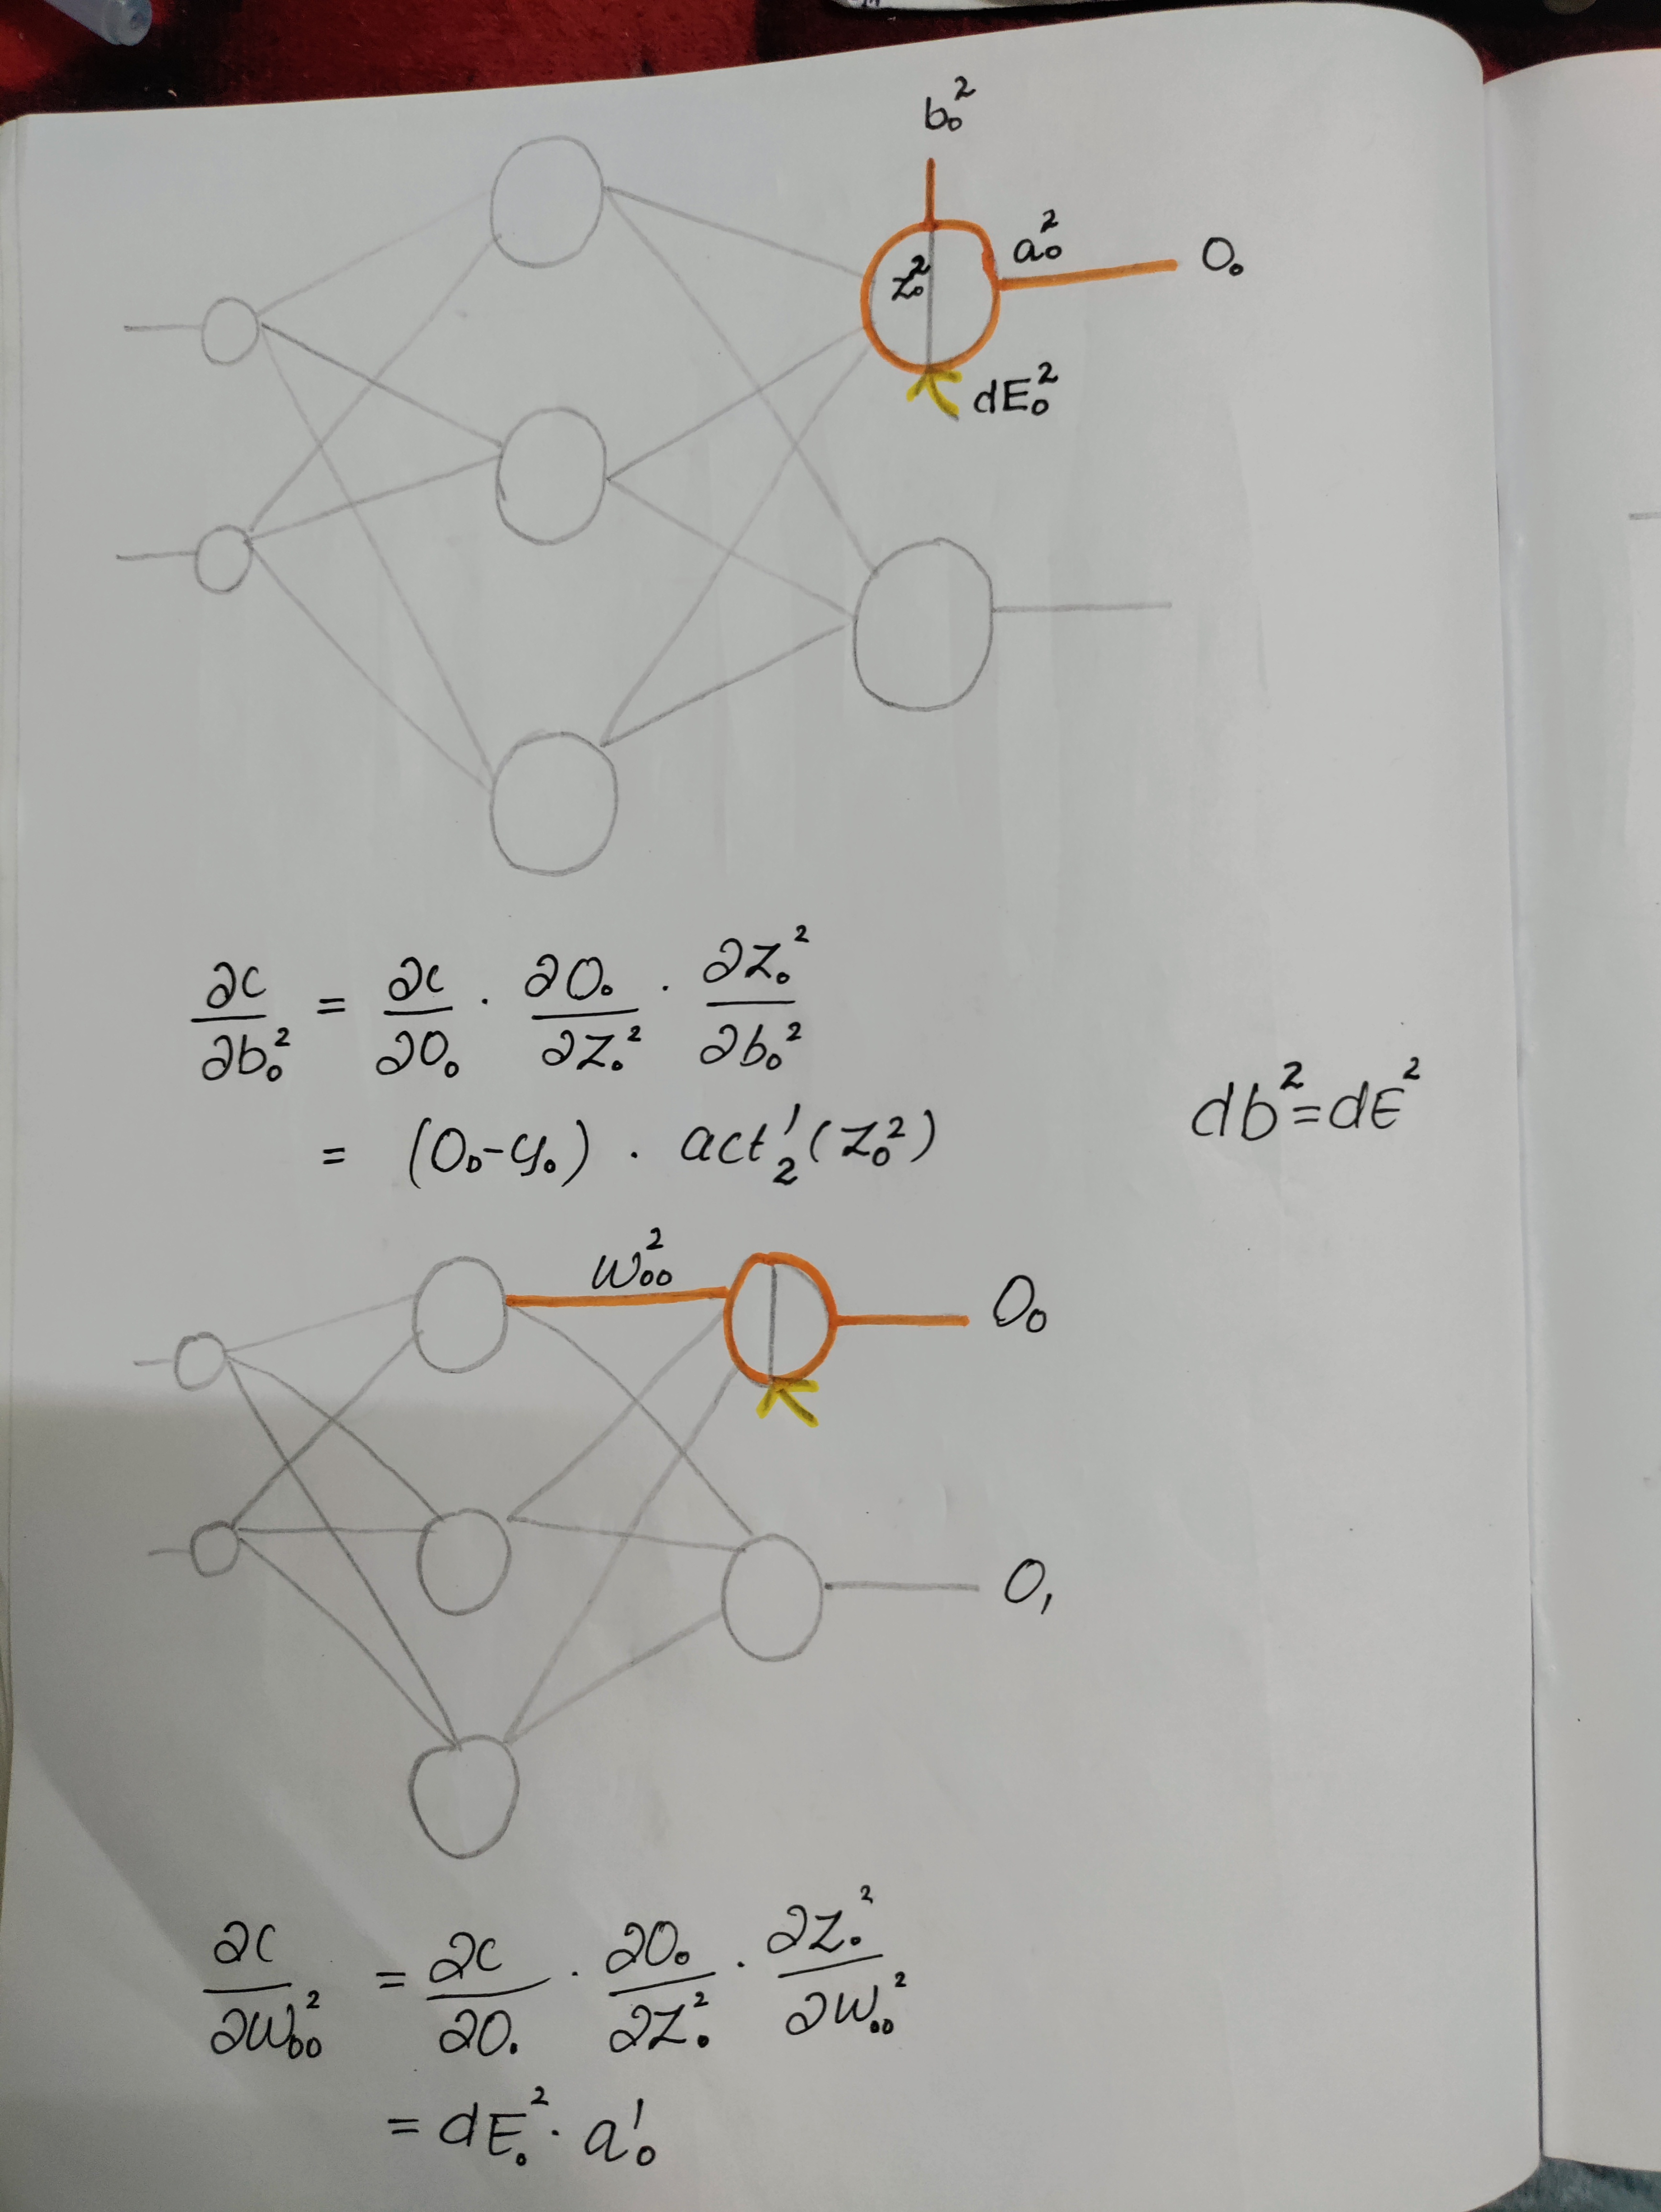 b₀²
a₀²
O₀
z₀²
dE₀²
∂C/∂b₀² = ∂C/∂O₀ · ∂O₀/∂z₀² · ∂z₀²/∂b₀²
= (O₀-y₀) · act₂'(z₀²)
db²=dE²
w₀₀²
O₀
O₁
∂C/∂w₀₀² = ∂C/∂O₀ · ∂O₀/∂z₀² · ∂z₀²/∂w₀₀²
= dE₀² · a₀¹